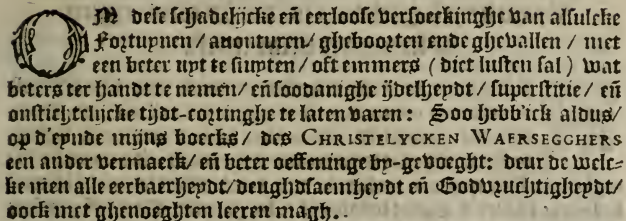 OM dese schadelijcke en̄ eerloose versoeckinghe van alsulcke
Fortuynen / avonturen / gheboorten ende ghevallen / met
een beter uyt te sluyten / oft emmers (diet lusten sal) wat
beters ter handt te nemen / en̄ soodanighe ijdelheydt / superstitie / en̄
onstichtelijcke tijdt-cortinghe te laten varen: Soo hebb'ick aldus /
op d'eynde mijns boecks / des CHRISTELYCKEN WAERSEGGHERS
een ander vermaeck / en̄ beter oeffeninge by-gevoeght: deur de welc-
ke men alle eerbaerheydt / deughdsaemheydt en̄ Godvruchtigheydt /
oock met ghenoeghten leeren magh.